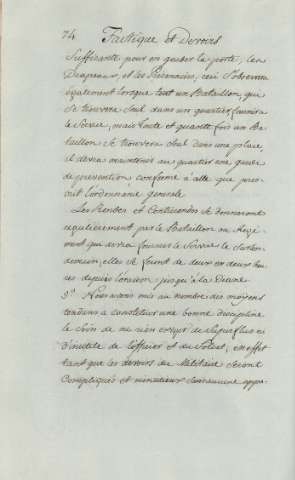 74 Tactique et Devoirs
Suffisante pour en garder la porte, les
Drapeaux, et les Prisonniers, ceci S'observera
également lorsque tout un Bataillon, qui
Se trouvera Seul dans un quartier fournira
le Service, mais toute et quante fois un Ba-
taillon Se trouvera Seul dans une place,
il devra maintenir au quartier une garde
de prévention conforme à celle que pres-
crit l'ordonnance generale.
Les Rondes et Contrerondes Se donneront
régulièrement par le Bataillon ou Régi-
ment qui devra fournir le Service le Surlen-
demain, elles Se feront de deux en deux heu-
res depuis l'oraison jusqu'à la Deane
3.° Nous avons mis au nombre des moyens
tendans à consolider une bonne discipline
le Soin de ne rien exiger de Superflus ni
d'inutile de l'officier et du Soldat, en effet
tant que les devoirs du Militaire Seront
Compliqués et minutieux dans une appa-